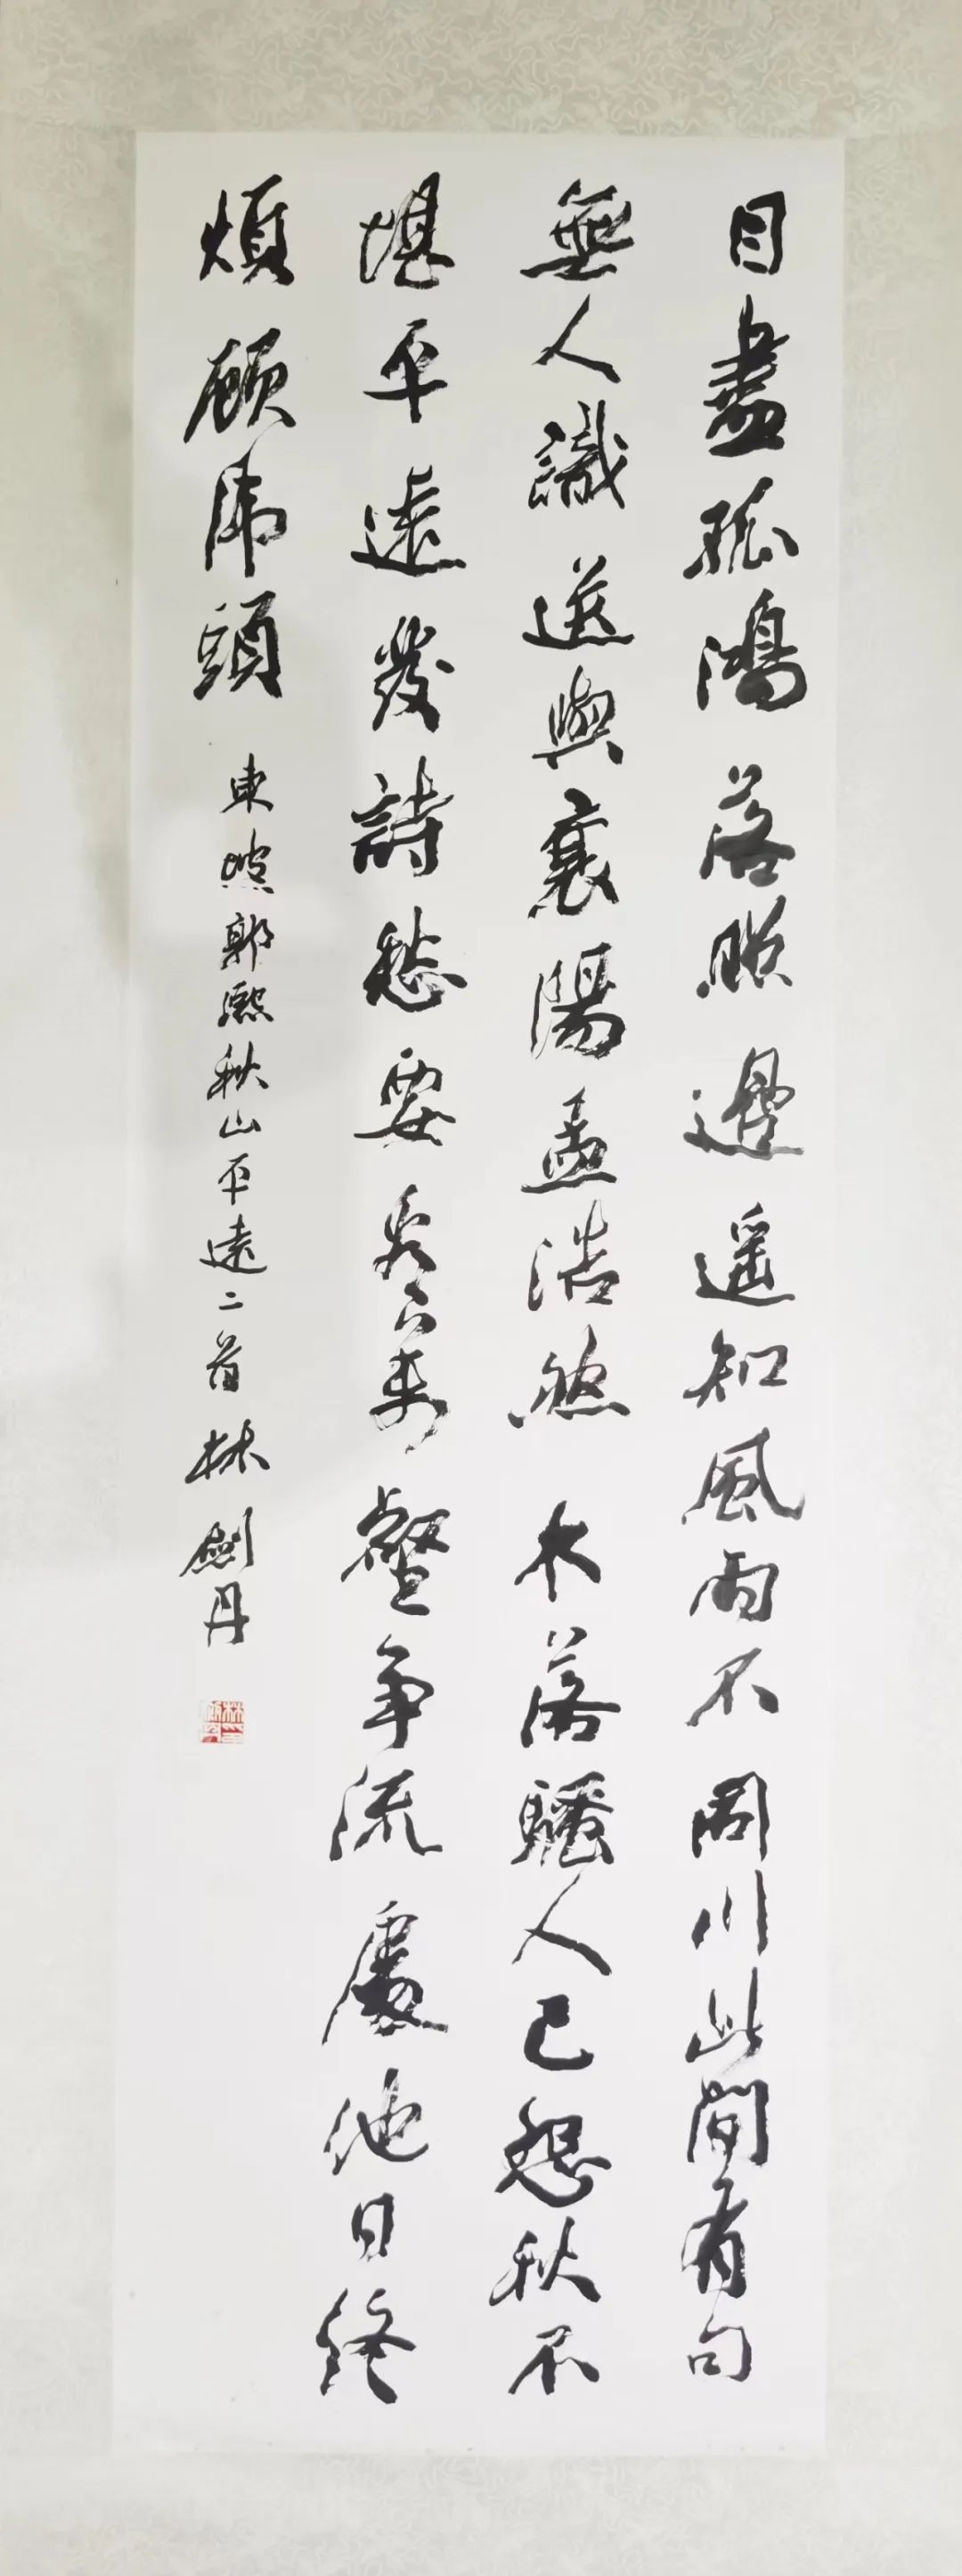 目盡孤鴻落照邊遥知風雨不同川此間有句
無人識送與襄陽孟浩然木落騷人已怨秋不
堪平遠發詩愁要看萬壑争流處他日終
煩顧虎頭
東坡郭熙秋山平遠二首林劍丹